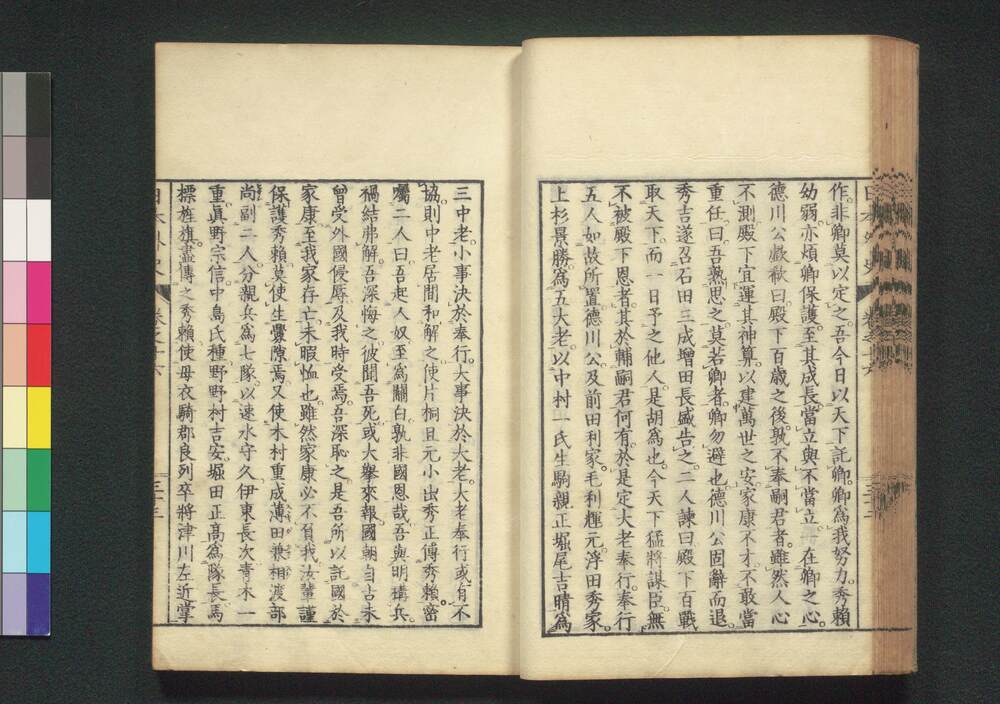 作非卿莫以定之。吾今日以天下託卿。卿爲我努力。秀賴
幼弱。亦煩卿保護。至其成長。當立與不當立。 在卿之心。
德川公歔欷曰。殿下百歲之後。孰不奉嗣君者。雖然人心
不測。殿下宜運其神算。以建萬世之安。家康不才。不敢當
重任。曰。吾熟思之。莫若卿者。卿勿避也。德川公固辭而退。
秀吉遂召石田三成增田長盛告之。二人諫曰。殿下百戰
取天下。而一日予之他人。是胡爲也。今天下猛將謀臣。無
不被殿下恩者。其於輔嗣君何有。於是定大老奉行。奉行
五人如故。所置德川公及前田利家。毛利輝元。浮田秀家。
上杉景勝爲五大老。以中村一氏生駒親正堀尾吉晴爲
三中老。小事決於奉行。大事決於大老。大老奉行或有不
協。則中老居間和解之。使片桐且元小出秀正傅秀賴。密
囑二人曰。吾起人奴。至爲關白。孰非國恩哉。吾與明構兵。
禍結弗解。吾深悔之。彼聞吾死。或大擧來報。國朝自古未
曾受外國侵辱。及我時受焉。吾深恥之。是吾所以託國於
家康。至我家存亡。未暇恤也。雖然家康必不負我。汝輩謹
保護秀賴。莫使生釁隙焉。又使木村重成薄田兼相渡部
尚副二人。分親兵爲七隊。以速水守久伊東長次靑木一
重眞野宗信中島氏種野野村吉安堀田正高爲隊長。馬
標旌旗。盡傳之秀賴。使母衣騎郡良列卒將津川左近掌
日本外史 卷之十六